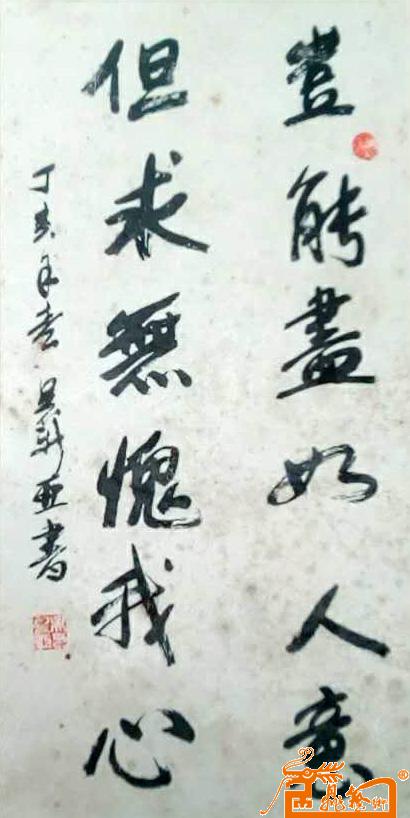 豈能盡如人意
但求無愧我心
丁亥年春 吴新亚書